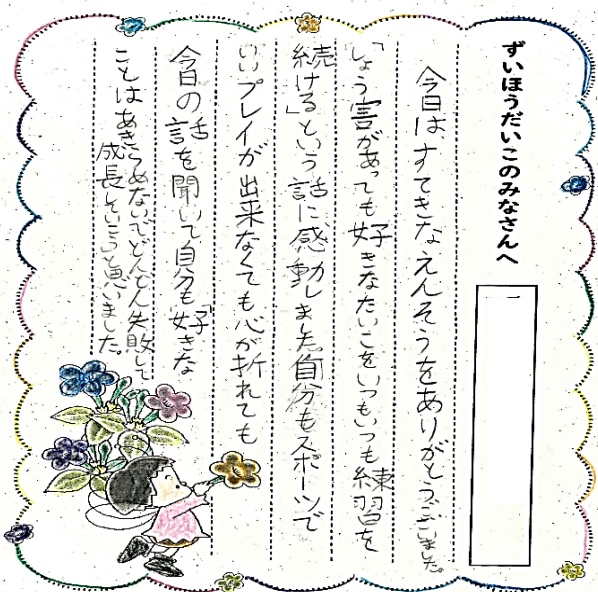 ずいほうだいこのみなさんへ
一
今日はすてきなえんそうをありがとうございました。
「しょう害があっても好きなたいこをいつもいつも練習を
続ける」という話に感動しました。自分もスポーツで
いいプレイが出来なくても心が折れても
今日の話を聞いて自分も「好きな
ことはあきらめないでどんどん失敗して
成長していこうと思いました。